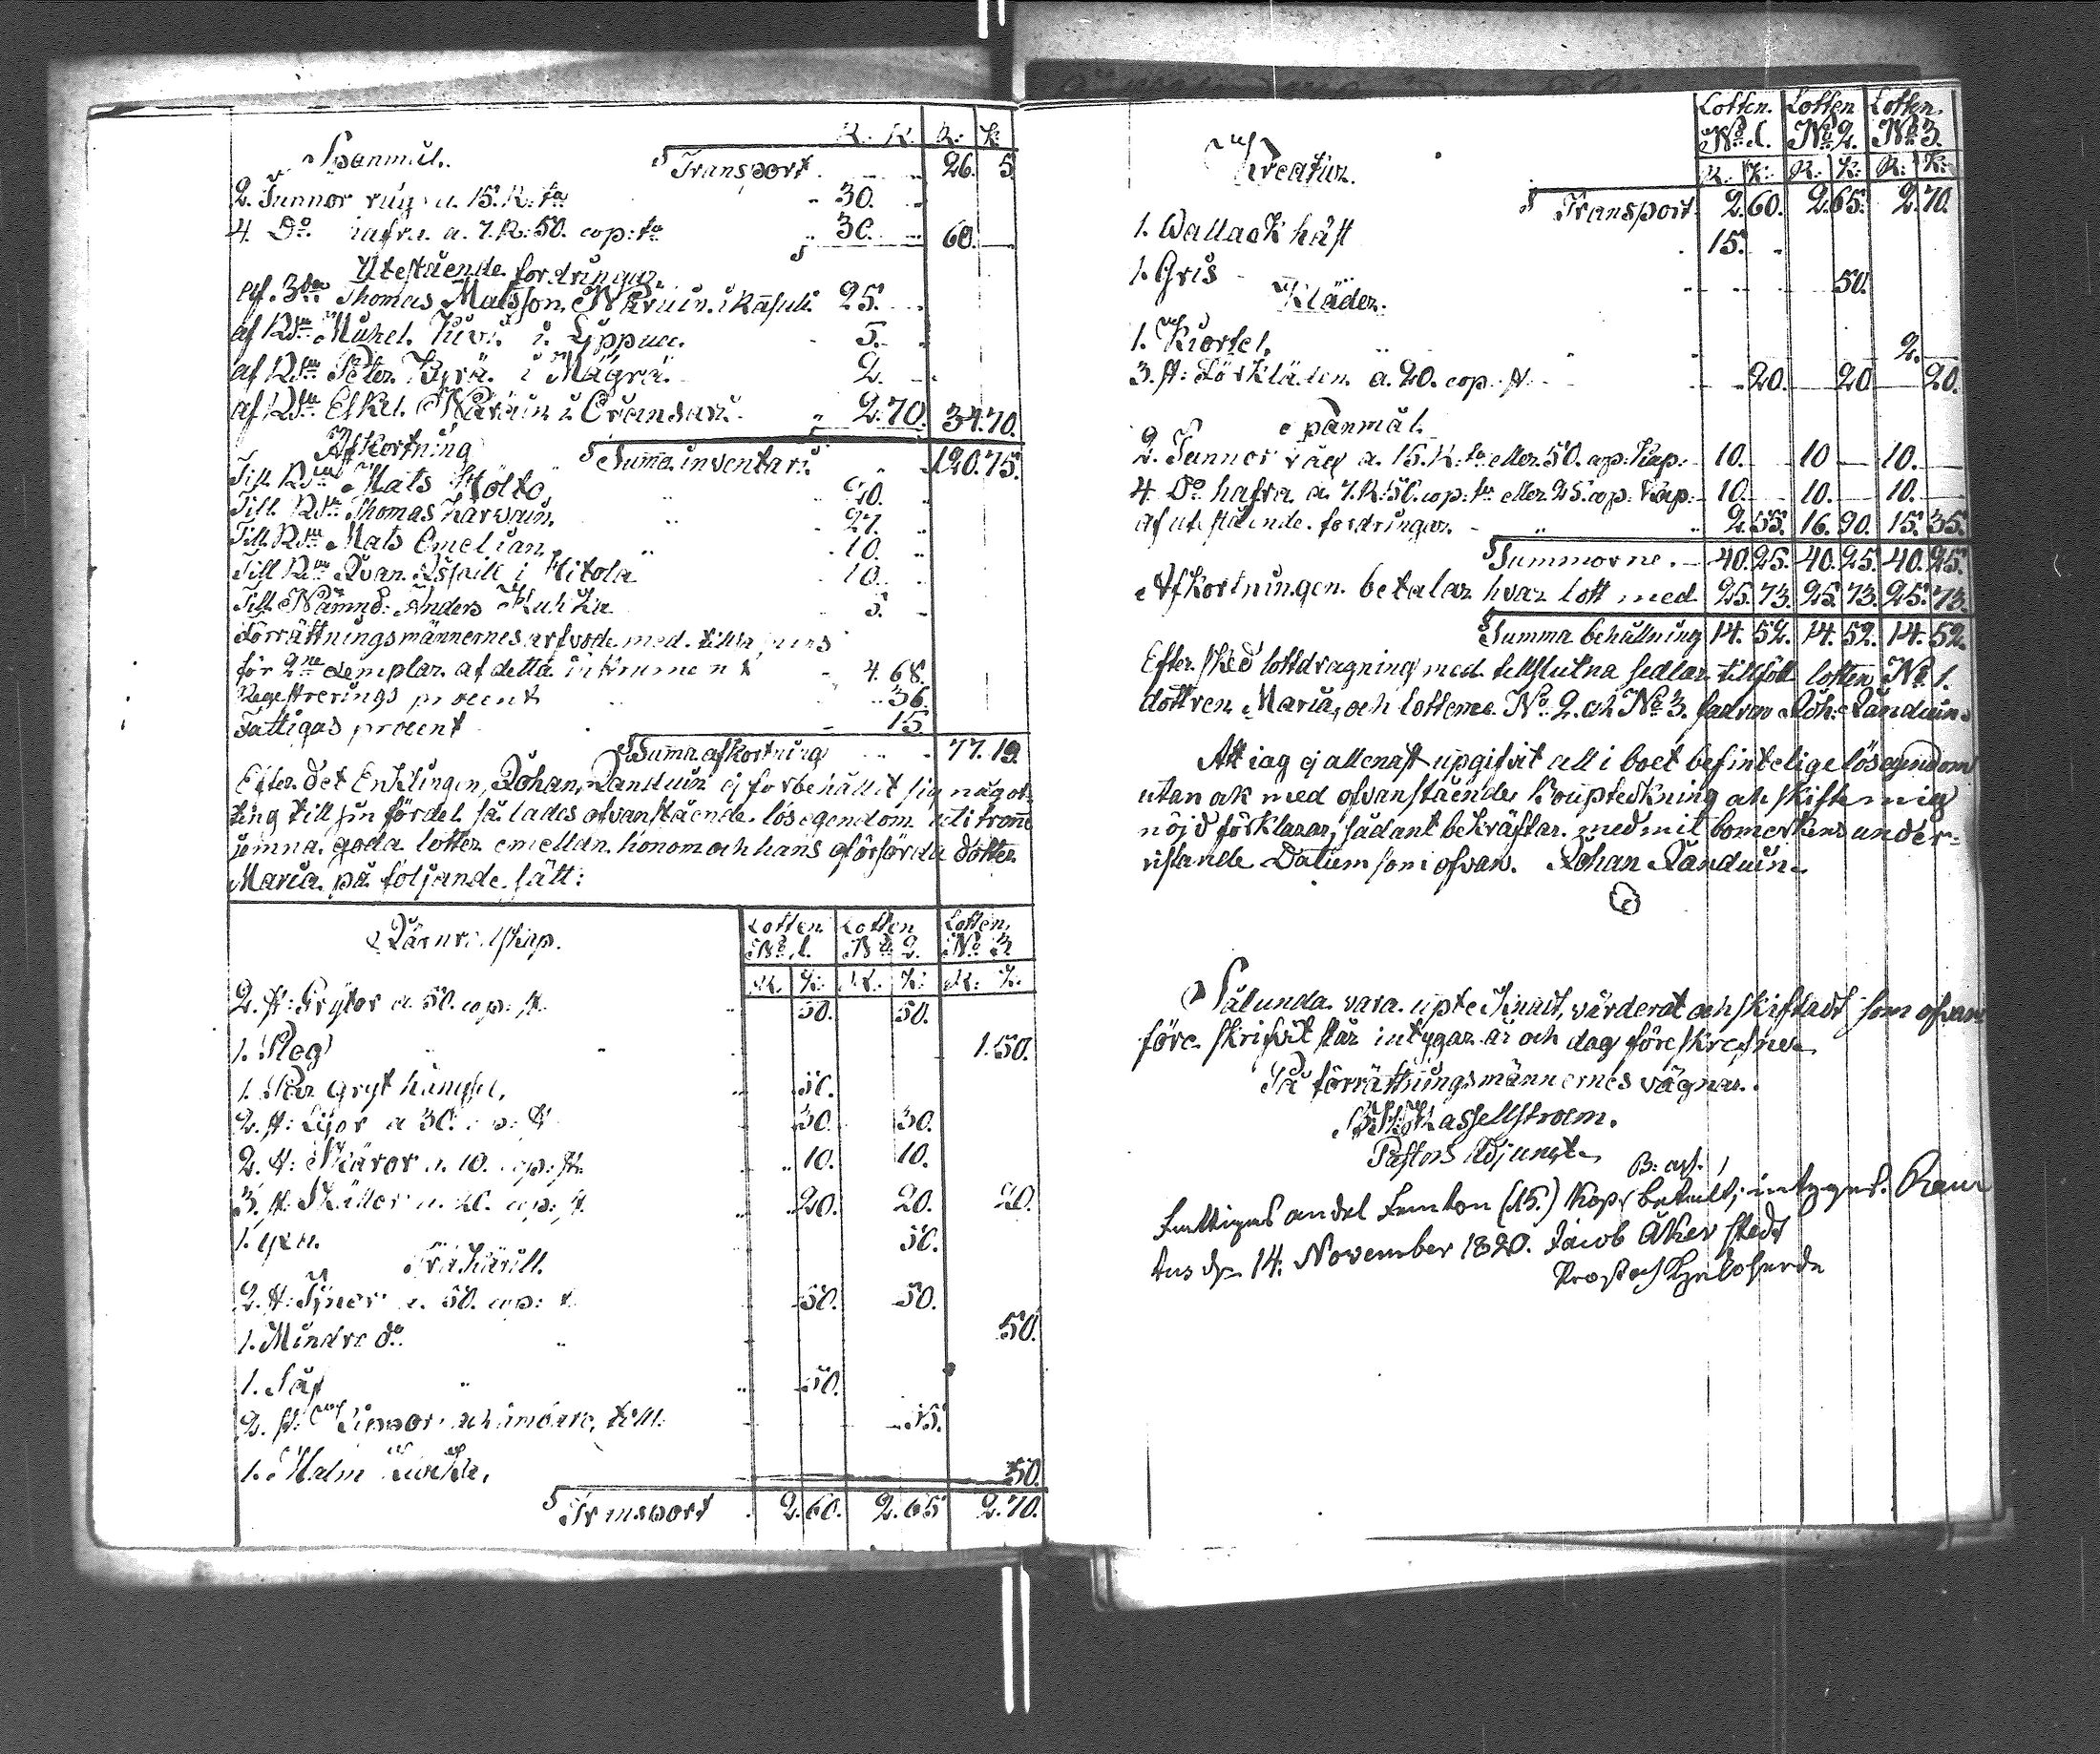 R: K. R: K:
Spanmål. Transport 26. 5
2. Tunnor råg a. 15. R: t:a 30.
4. D:o hafra a. 7. R: 50. cop: t:a 30. 60.
Utestående fordringar.
af Thomas Matsson Närväin i 25.
af B:n Mickel Kivi i Lippua. 5.
af B:n Peter Pyrä i Mägrä. 2.
af B:n Eskel Närväin i 2.70. 34.70.
Afkortning Summa inventarii 120.75.
Till B:n Mats Hölto 20.
Till B:n Thomas Harvain 27.
Till B:n Mats Emeljan 10.
Till B:n i Hitola 10.
Till Nämnd: Anders Kuhka 5.
Förrättningsmännernes arfvode med
för 2:ne Exemplar af detta instrument 4. 68.
Registrerings procent 36.
Fattigas procent 15
Summa afkortning 77.19.
Efter det Enklingen, Johan Randuin ej forbehållit sig något
ting till sin fördel så lades ofvanstående lösegendom uti trenne
jemna goda lotter emellan honom och hans oförsörda dotter
Maria på följande sätt:
Järnredskap. Lotten N:o 1. Lotten N:o 2. Lotten N:o 3
R. K: R. K: R: K.
2. st: Grytor a 50. cop: st. 50. 50.
1. Plog 1.50.
1. Par Gryt hängsel, 50.
2. st: Lijor a 30. cop: st 30. 30.
2. st: Skäror a. 10. cop: st: 10. 10.
3. st: a. 20. cop: st. 20. 20. 20.
1. yxa. 50.
Träkärill.
2. st: Tynor a. 50. cop: st. 50. 50.
1. Mindre d:o 50.
1. Såg 50.
2. st: 15.
1. Halm 50.
Transport 2.60. 2.65 2.70.
Lotten. N:o 1. Lotten N:o 2. Lotten. N:o 3.
Kreatur. R. K: R: K: R: K:
Transport. 2.60. 2.65. 2.70.
1. Wallack häst 15.
1. Gris 50.
Kläder.
1. Kiortel. 2.
3. st: Förkläden a. 20. cop: st. 20. 20 20.
Spanmål.
2. Tunnor råg a. 15. R: t:a eller 50. cop: Kap: 10. 10 10.
4 D:o hafra a. 7. R: 50. cop: t:a eller 25 cop: Kap: 10. 10. 10.
af utestående fordringar. 2.55. 16.90. 15.35.
Summorne. 40.25. 40.25. 40.25.
Afkortningen betalar hvar lott med 25.73. 25.73. 25.73.
Summa behållning 14. 52. 14. 52. 14. 52.
Efter sked lottdragning med tillslutna sedlar tillföll lotten N:o 1.
dottren Maria, och lotterne N:o 2. och N:o 3. fadren Joh: Randuin.
Att iag ej allenast upgifvit all i boet befintelige lösegendom
utan ok med ofvanstående Bouptekning och skifte mig
nöjd förklarar, sådant bekräftar med mit bomerkes under-
ristande Datum som ofvan. Johan Randuin.
Sålunda vara uptecknadt, värderat och skiftadt som ofvan
före skrifvit står intygar år och dag föreskrefne.
På förrättningsmännernes vägnar.
Hasselstroem.
Pastors Adjunct.
Fattigas andel Femton (15.) Kop: betalt, intygas.
den 14. November 1820. Jacob Åkerstedt
Prost och Kyrkoherde